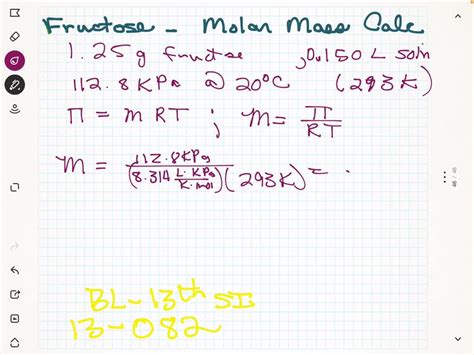 Fructose - Molar Mass Calc
1.25g fructse , 0.150 L soln
112.8 KPa @ 20°C (293K)
Π = m RT ; m = Π / RT
m = 112.8KPa / (8.314 L·KPa / K·mol)(293K) = .
BL-13th SI
13-082